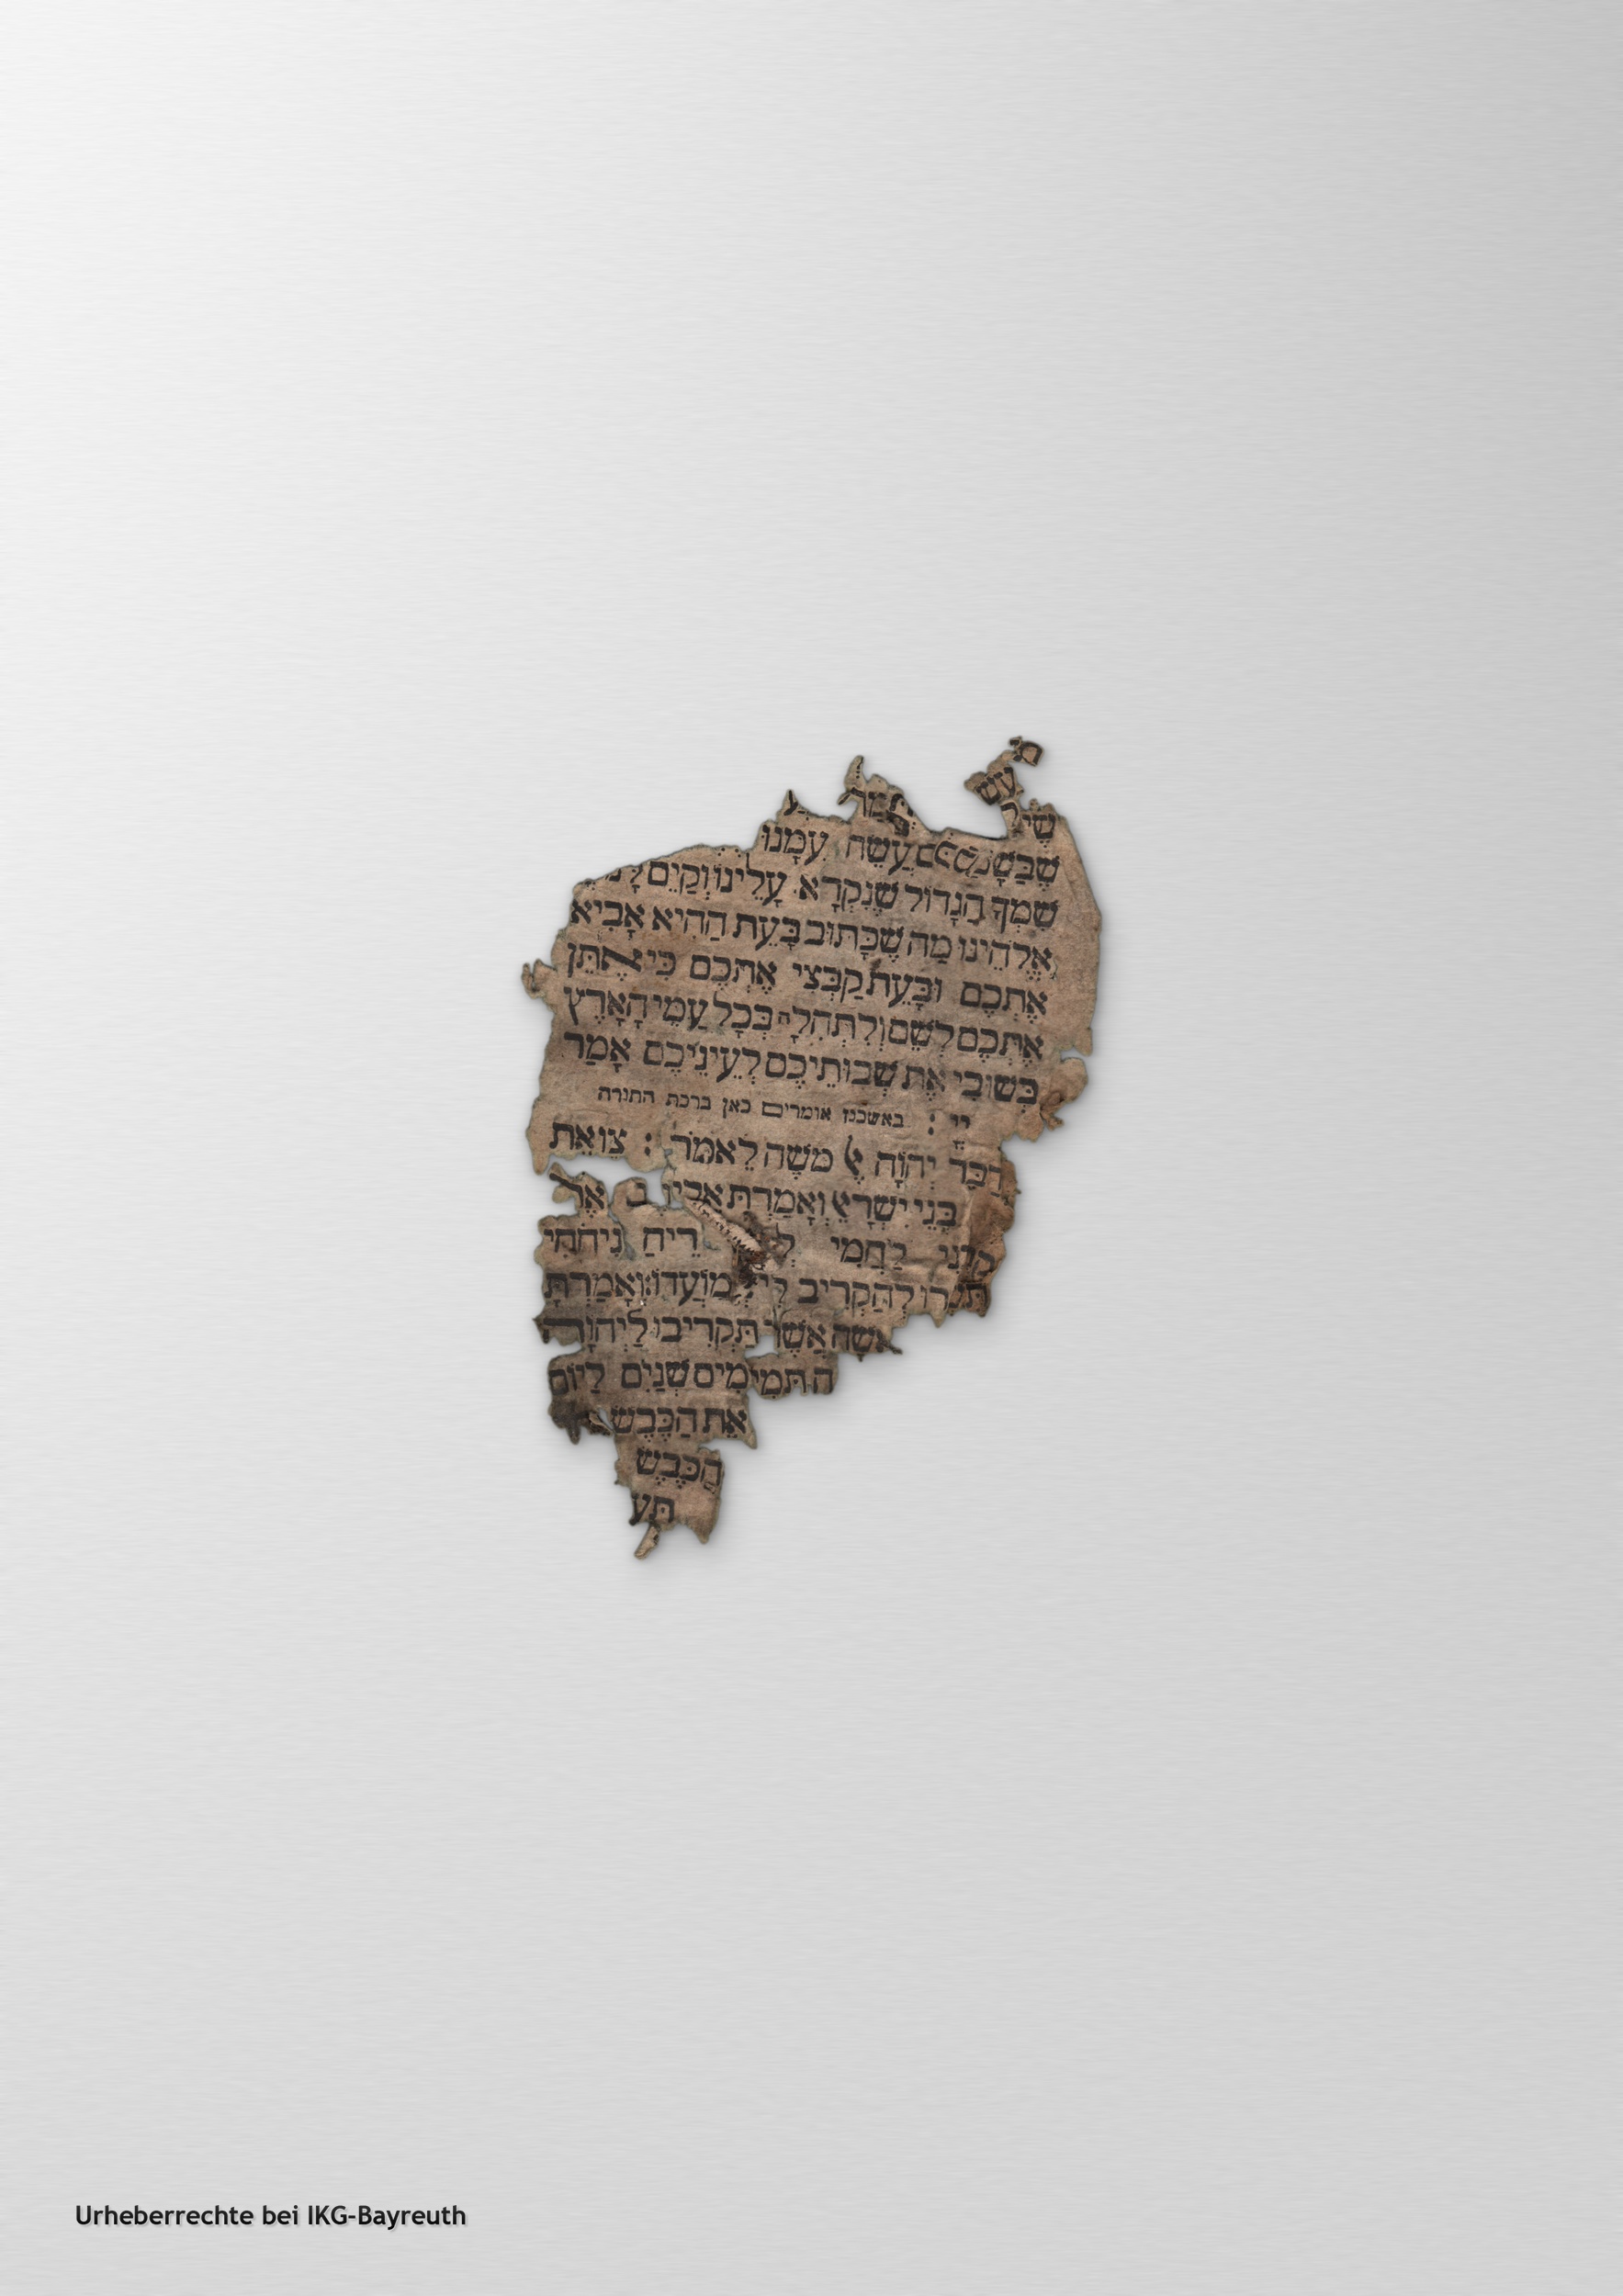 שי
שֶׁבַּשָּׁמַיִם עֲשֵׂה עִמָּנוּ
שִׁמְךָ הַגָּדוֹל שֶׁנִּקְרָא עָלֵינוּ וְקַיֵּם לָנוּ
אֱלֹהֵינוּ מַה שֶׁכָּתוּב בָּעֵת הַהִיא אָבִיא
אֶתְכֶם וּבָעֵת קַבְּצִי אֶתְכֶם כִּי אֶתֵּן
אֶתְכֶם לְשֵׁם וְלִתְהִלָּה בְּכָל עַמֵּי הָאָרֶץ
בְּשׁוּבִי אֶת שְׁבוּתֵיכֶם לְעֵינֵיכֶם אָמַר
יְיָ : באשכנז אומרים כאן ברכת התורה
וַיְדַבֵּר יְהוָֹה אֶל מֹשֶׁה לֵּאמֹר : צַו אֶת
בְּנֵי יִשְׂרָאֵל וְאָמַרְתָּ אֲלֵיהֶם אֶת
קָרְבָּנִי לַחְמִי רֵיחַ נִיחֹחִי
תִּשְׁמְרוּ לְהַקְרִיב לִי בְּמוֹעֲדוֹ: וְאָמַרְתָּ
הָאִשֶּׁה אֲשֶׁר תַּקְרִיבוּ לַיהוָֹה
תְמִימִים שְׁנַיִם לַיּוֹם
אֶת הַכֶּבֶשׂ
הַכֶּבֶשׂ
תַּעֲ
Urheberrechte bei IKG-Bayreuth